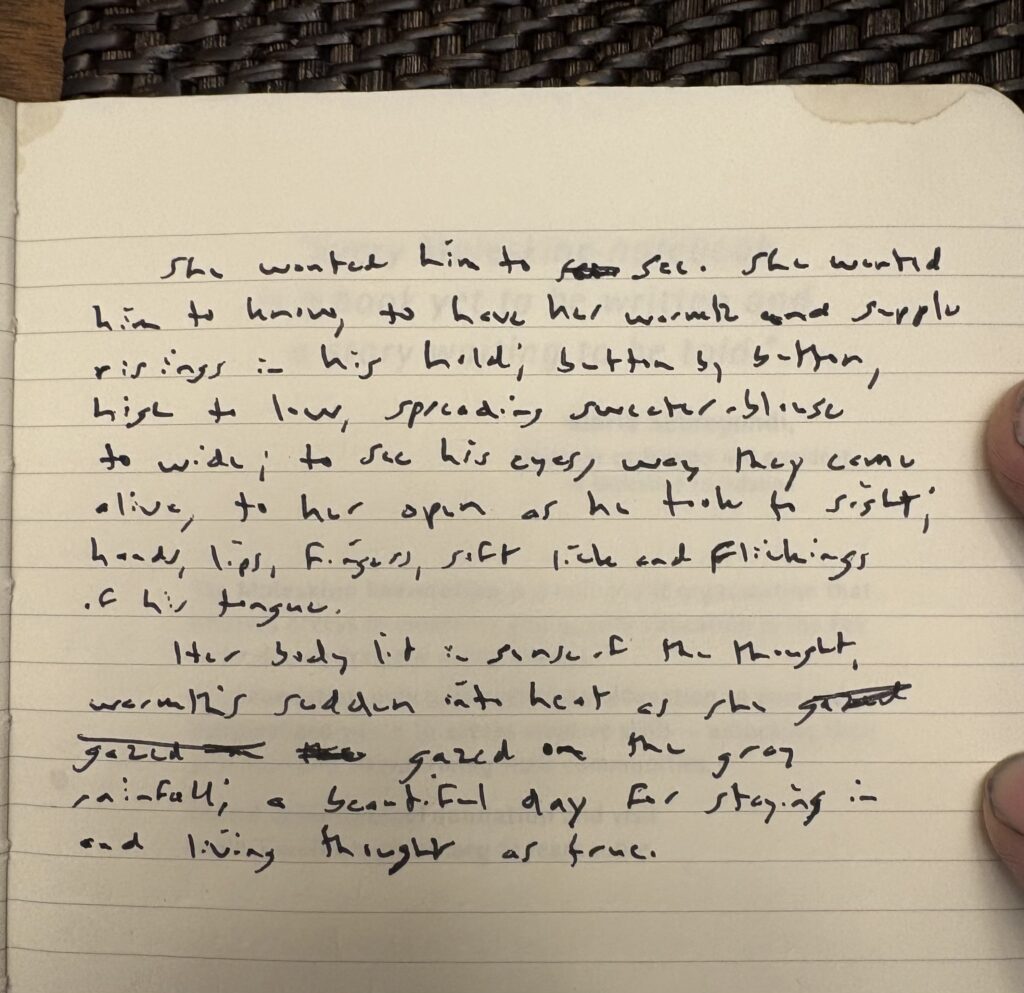 She wanted him to see. She wanted
him to know, to have her warmth and supple
risings in his hold; button by button,
high to low, spreading sweater-blouse
to wide; to see his eyes, way they came
alive, to her open as he took to sight;
hands, lips, fingers, soft lick and flickings
of his tongue.
Her body lit in sense of the thought,
warmth's sudden into heat as she gazed
gazed on the gazed on the gray
rainfall; a beautiful day for staying in
and living thought as true.